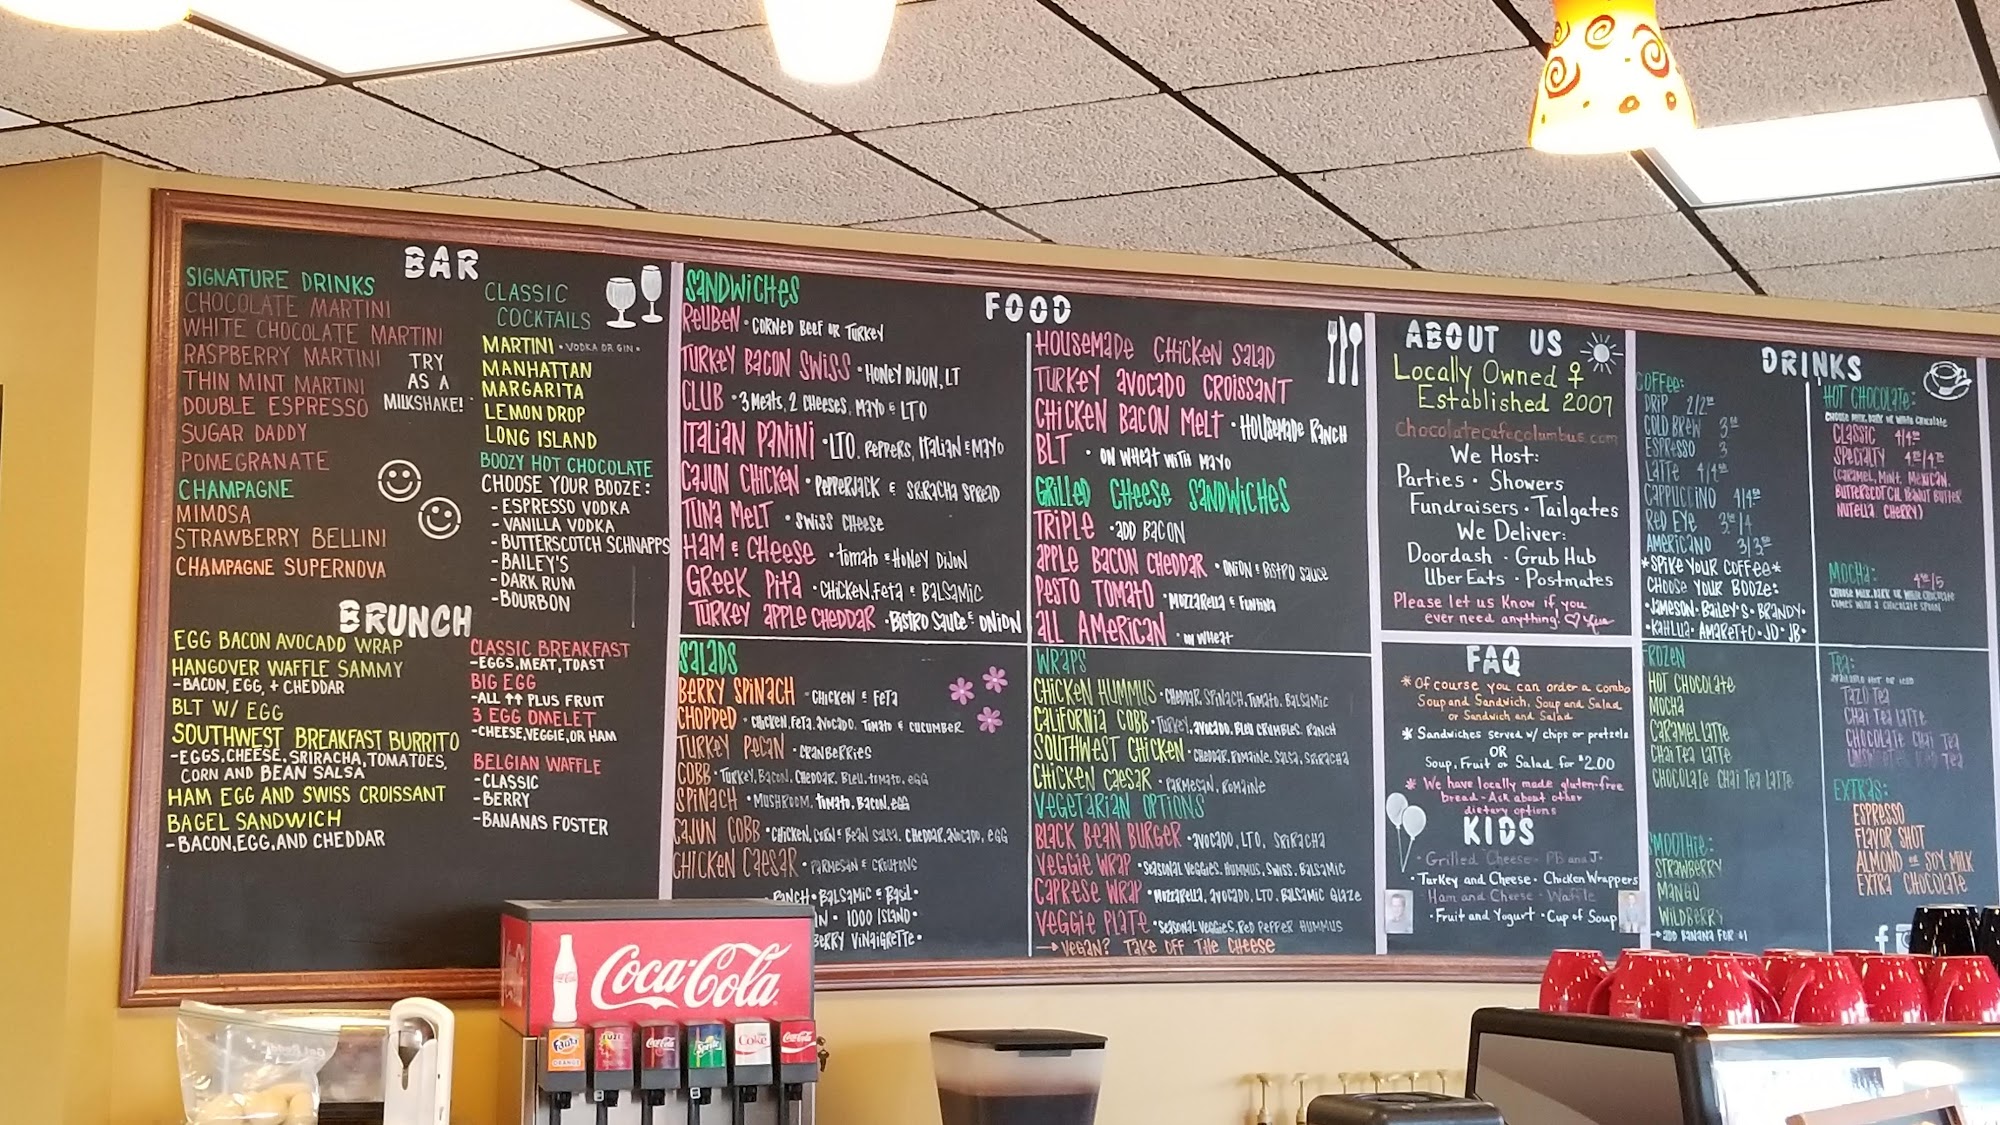 BAR
SIGNATURE DRINKS
CHOCOLATE MARTINI
WHITE CHOCOLATE MARTINI
RASPBERRY MARTINI
THIN MINT MARTINI
DOUBLE ESPRESSO
SUGAR DADDY
POMEGRANATE
TRY
AS A
MILKSHAKE!
CHAMPAGNE
MIMOSA
STRAWBERRY BELLINI
CHAMPAGNE SUPERNOVA
CLASSIC
COCKTAILS
MARTINI • VODKA OR GIN •
MANHATTAN
MARGARITA
LEMON DROP
LONG ISLAND
BOOZY HOT CHOCOLATE
CHOOSE YOUR BOOZE:
- ESPRESSO VODKA
- VANILLA VODKA
- BUTTERSCOTCH SCHNAPPS
- BAILEY'S
- DARK RUM
- BOURBON
BRUNCH
EGG BACON AVOCADO WRAP
HANGOVER WAFFLE SAMMY
- BACON, EGG, + CHEDDAR
BLT W/ EGG
SOUTHWEST BREAKFAST BURRITO
- EGGS, CHEESE, SRIRACHA, TOMATOES,
CORN AND BEAN SALSA
HAM EGG AND SWISS CROISSANT
BAGEL SANDWICH
- BACON, EGG, AND CHEDDAR
CLASSIC BREAKFAST
- EGGS, MEAT, TOAST
BIG EGG
- ALL ↑↑ PLUS FRUIT
3 EGG OMELET
- CHEESE, VEGGIE, OR HAM
BELGIAN WAFFLE
- CLASSIC
- BERRY
- BANANAS FOSTER
FOOD
SANDWICHES
REUBEN • CORNED BEEF OR TURKEY
TURKEY BACON SWISS • HONEY DIJON, LT
CLUB • 3 MEATS, 2 CHEESES, MAYO & LTO
ITALIAN PANINI • LTO, PEPPERS, ITALIAN & MAYO
CAJUN CHICKEN • PEPPERJACK & SRIRACHA SPREAD
TUNA MELT • SWISS CHEESE
HAM & CHEESE • TOMATO & HONEY DIJON
GREEK PITA • CHICKEN, FETA & BALSAMIC
TURKEY APPLE CHEDDAR • BISTRO SAUCE & ONION
HOUSEMADE CHICKEN SALAD
TURKEY AVOCADO CROISSANT
CHICKEN BACON MELT • HOUSEMADE RANCH
BLT • ON WHEAT WITH MAYO
GRILLED CHEESE SANDWICHES
TRIPLE • ADD BACON
APPLE BACON CHEDDAR • ONION & BISTRO SAUCE
PESTO TOMATO • MOZZARELLA & FONTINA
ALL AMERICAN • ON WHEAT
SALADS
BERRY SPINACH • CHICKEN & FETA
CHOPPED • CHICKEN, FETA, AVOCADO, TOMATO & CUCUMBER
TURKEY PECAN • CRANBERRIES
COBB • TURKEY, BACON, CHEDDAR, BLEU, TOMATO, EGG
SPINACH • MUSHROOM, TOMATO, BACON, EGG
CAJUN COBB • CHICKEN, CORN & BEAN SALSA, CHEDDAR, AVOCADO, EGG
CHICKEN CAESAR • PARMESAN & CROUTONS
RANCH • BALSAMIC & BASIL •
• 1000 ISLAND •
VINAIGRETTE •
WRAPS
CHICKEN HUMMUS • CHEDDAR, SPINACH, TOMATO, BALSAMIC
CALIFORNIA COBB • TURKEY, AVOCADO, BLEU CRUMBLES, RANCH
SOUTHWEST CHICKEN • CHEDDAR, ROMAINE, SALSA, SRIRACHA
CHICKEN CAESAR • PARMESAN, ROMAINE
VEGETARIAN OPTIONS
BLACK BEAN BURGER • AVOCADO, LTO, SRIRACHA
VEGGIE WRAP • SEASONAL VEGGIES, HUMMUS, SWISS, BALSAMIC
CAPRESE WRAP • MOZZARELLA, AVOCADO, LTO, BALSAMIC GLAZE
VEGGIE PLATE • SEASONAL VEGGIES, RED PEPPER HUMMUS
→ VEGAN? TAKE OFF THE CHEESE
ABOUT US
Locally Owned ♀
Established 2007
chocolatecafecolumbus.com
We Host:
Parties • Showers
Fundraisers • Tailgates
We Deliver:
Doordash • Grub Hub
Uber Eats • Postmates
Please let us know if you
ever need anything! ♡
FAQ
* Of course you can order a combo
Soup and Sandwich, Soup and Salad
or Sandwich and Salad
* Sandwiches served w/ chips or pretzels
OR
Soup, Fruit or Salad for $2.00
* We have locally made gluten-free
bread - Ask about other
dietary options
KIDS
• Grilled Cheese • PB and J •
• Turkey and Cheese • Chicken Wrappers
• Ham and Cheese • Waffle
• Fruit and Yogurt • Cup of Soup
DRINKS
COFFEE:
DRIP
COLD BREW
ESPRESSO 3
LATTE
CAPPUCCINO
RED EYE
AMERICANO
* SPIKE YOUR COFFEE *
CHOOSE YOUR BOOZE:
• JAMESON • BAILEY'S • BRANDY •
• KAHLUA • AMARETTO • JD • JB •
HOT CHOCOLATE:
CHOOSE MILK, DARK OR WHITE CHOCOLATE
CLASSIC
SPECIALTY
(CARAMEL, MINT, MEXICAN,
BUTTERSCOTCH, PEANUT BUTTER
NUTELLA, CHERRY)
MOCHA:
CHOOSE MILK, DARK OR WHITE CHOCOLATE
COMES WITH A CHOCOLATE SPOON
FROZEN
HOT CHOCOLATE
MOCHA
CARAMEL LATTE
CHAI TEA LATTE
CHOCOLATE CHAI TEA LATTE
SMOOTHIE:
STRAWBERRY
MANGO
WILDBERRY
→ ADD BANANA FOR $1
TEA:
AVAILABLE HOT OR ICED
TAZO TEA
CHAI TEA LATTE
CHOCOLATE CHAI TEA
TEA
EXTRAS:
ESPRESSO
FLAVOR SHOT
ALMOND OR SOY MILK
EXTRA CHOCOLATE
f
Coca-Cola
Fanta
ORANGE
FUZE
Coca-Cola
Sprite
Diet Coke
Coca-Cola